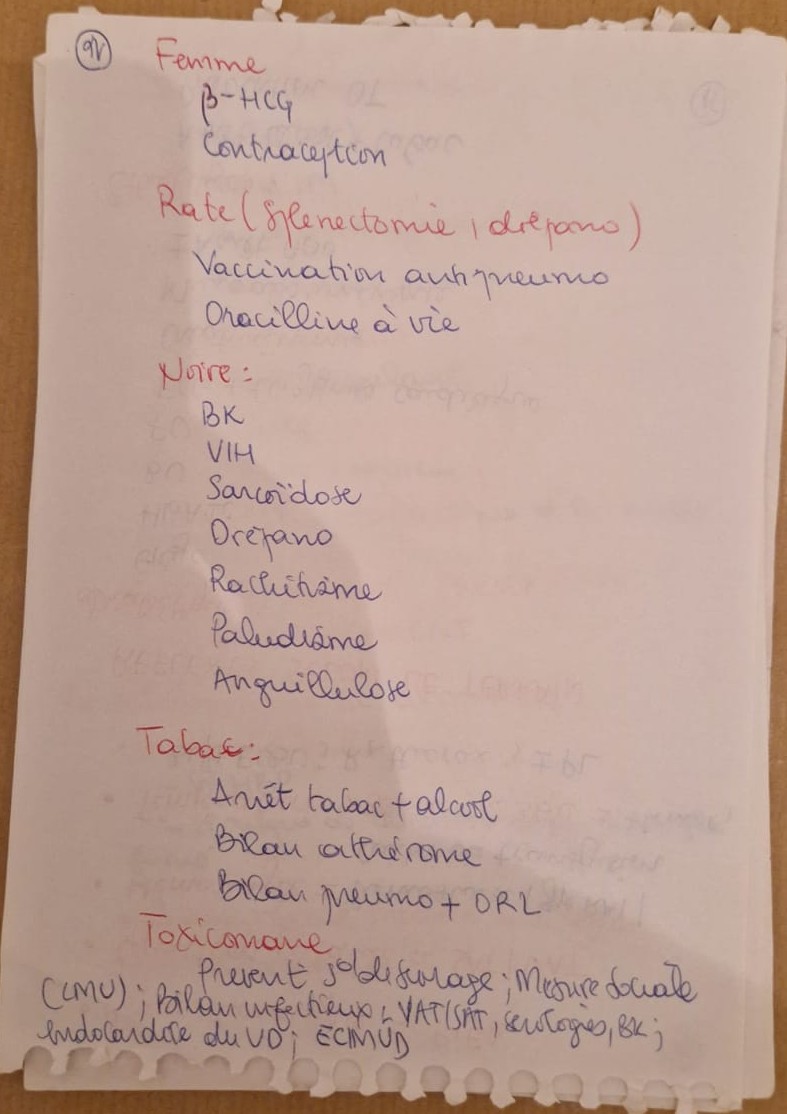 Femme
β-HCG
Contraception
Rate (splenectomie, drépano)
Vaccination antipneumo
Oracilline à vie
Noire :
BK
VIH
Sarcoïdose
Drépano
Rachitisme
Paludisme
Anguillulose
Tabac :
Arrêt tabac + alcool
Bilan athérome
Bilan pneumo + ORL
Toxicomane
Mesure sociale
(CMU) ; Bilan infectieux, VAT/SAT, serologies, BK ;
endocardite du VD ; ECIMUD